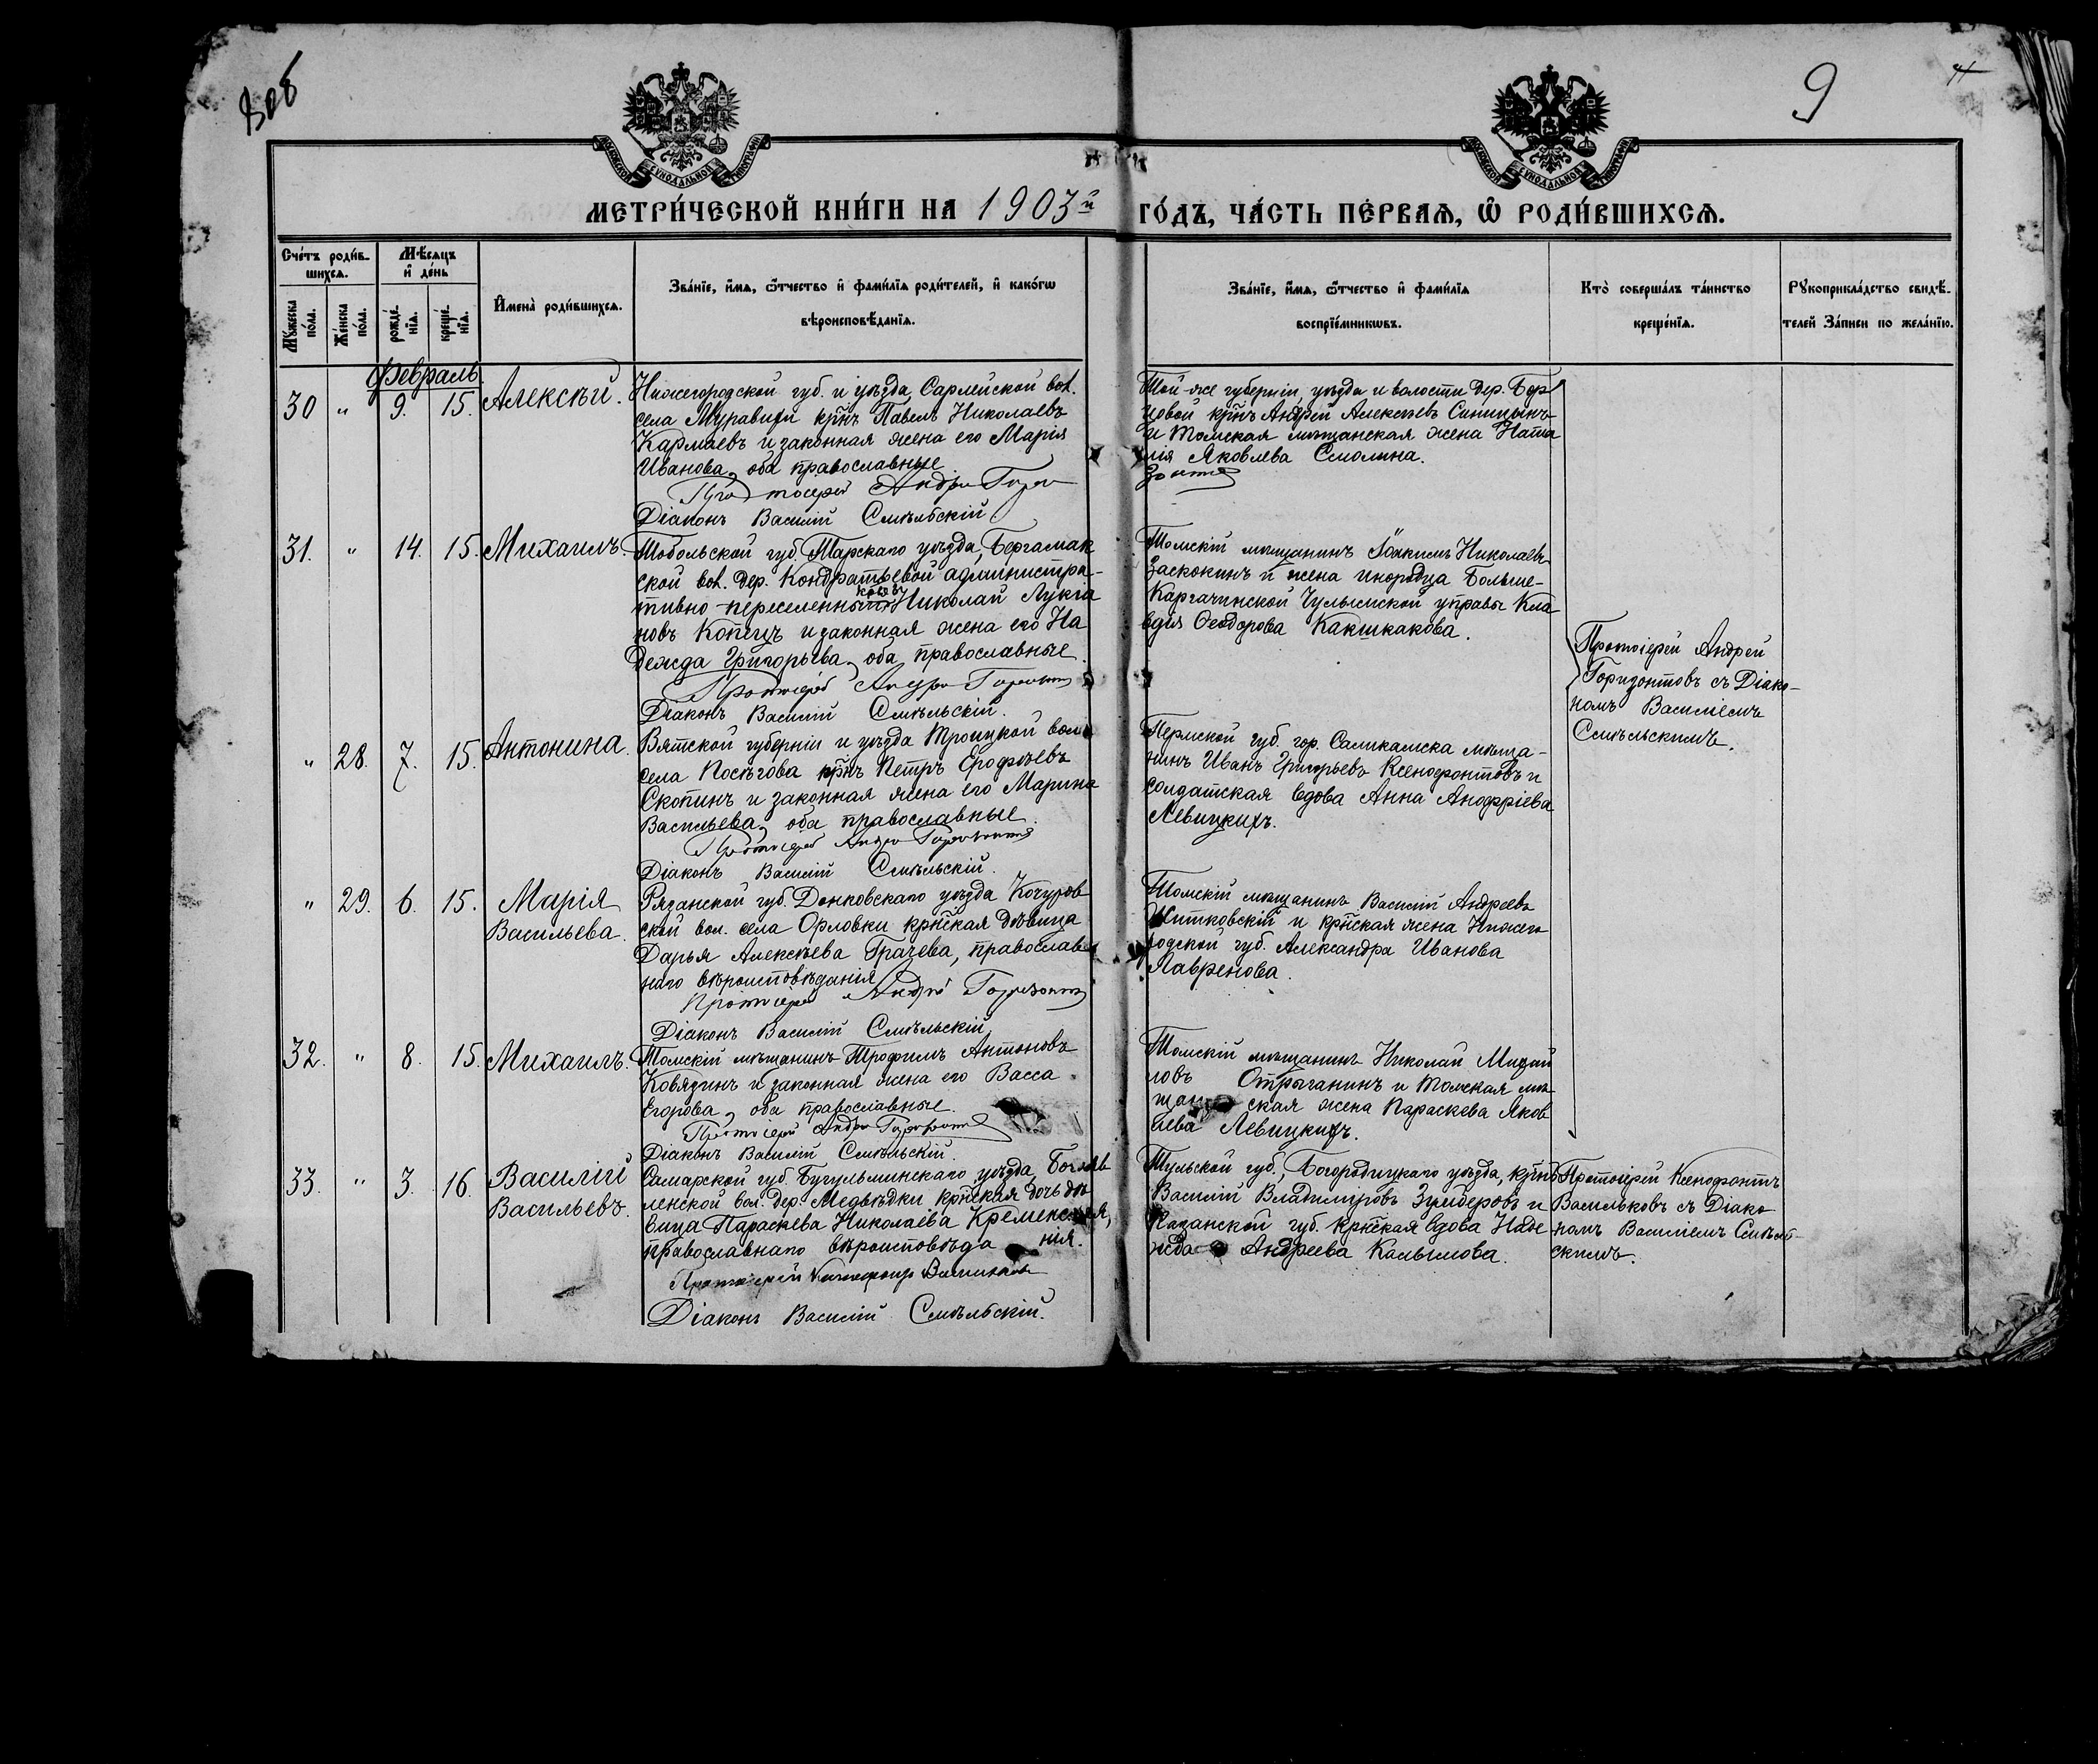 8об
9
МОСКОВСКОЙ СѴНОДАЛЬНОЙ ТИПОГРАФІИ
МОСКОВСКОЙ СѴНОДАЛЬНОЙ ТИПОГРАФІИ
МЕТРИ́ЧЕСКОЙ КНИ́ГИ НА 1903й ГО́ДЪ, ЧА́СТЬ ПЕ́РВАѦ, Ѡ҆ РОДИ́ВШИХСѦ.
Сче́тъ роди́в-
шихсѧ.
Мѣ́сѧцъ
и҆ де́нь
Мꙋ́жеска
по́ла.
Же́нска
по́ла.
рожде́-
нїѧ.
креще́-
нїѧ.
И҆мена̀ роди́вшихсѧ.
Зва́нїе, и҆́мѧ, ѻ҆́тчество и҆ фами́лїѧ роди́телей, и҆ како́гѡ
вѣроисповѣ́данїѧ.
Зва́нїе, и҆́мѧ, ѻ҆́тчество и҆ фами́лїѧ
воспрїе́мникѡвъ.
Кто̀ соверша́лъ та́инство
креще́нїѧ.
Рꙋкоприкла́дство свидѣ́-
телей За́писи по жела́нїю.
Февраль.
30 " 9. 15. Алексѣй.
Нижегородской губ. и уѣзда, Сарлейской вол.
села крнъ Павелъ Николаевъ
Кармаевъ и законная жена его Марія
Иванова, оба православные
Протоіерей Андрей
Діаконъ Василій Смѣльскій.
Той-же губерніи, уѣзда и волости дер. Бор-
цовой крнъ Андрей Алексѣевъ Синицынъ
и Томская мѣщанская жена Ната
лія Яковлева Смолина.
31. " 14. 15. Михаилъ.
Тобольской губ. Тарскаго уѣзда, Бергамак
ской вол. дер. Кондратьевой администра-
тивно-переселенный Николай Лукіа
новъ Копецъ и законная жена его На
дежда Григорьева, оба православные.
Протоіерей Андрей Горизонтовъ
Діаконъ Василій Смѣльскій.
Томскій мѣщанинъ Іоакимъ Николаевъ
Заскокинъ и жена инородца Больше-
Каргачинской Чулымской управы Кла
вдія Ѳеодорова Какшкакова.
" 28. 7. 15. Антонина.
Вятской губерніи и уѣзда Троицкой вол
села Посѣгова крнъ Петръ Ерофѣевъ
Скопинъ и законная жена его Марина
Васильева, оба православные.
Протоіерей Андрей Горизонтовъ
Діаконъ Василій Смѣльскій.
Пермской губ. гор. Саликамска мѣща-
нинъ Иванъ Григорьевъ Ксенофонтовъ и
солдатская вдова Анна Анофріева
Левицкихъ.
" 29. 6. 15. Марія
Васильева.
Рязанской губ. Донковскаго уѣзда Кочуров
ской вол. села Орловки крнская дѣвица
Дарья Алексѣева Грачева, православ
наго вѣроисповѣданія
Протоіерей Андрей Горизонтовъ
Діаконъ Василій Смѣльскій
Томскій мѣщанинъ Василій Андреевъ
Шитковскій и крнская жена Нижего
родской губ. Александра Иванова
Лавренова.
32. " 8. 15. Михаилъ.
Томскій мѣщанинъ Трофимъ Антоновъ
Ковязинъ и законная жена его Васса
Егорова, оба православные.
Протоіерей Андрей Горизонтовъ
Діаконъ Василій Смѣльскій.
Томскій мѣщанинъ Николай Михай
ловъ Отрыганинъ и Томская мѣ
щан ская жена Параскева Яков
лева Левицкихъ.
Протоіерей Андрей
Горизонтовъ съ Діако-
номъ Василіемъ
Смѣльскимъ.
33. " 3. 16. Василій
Васильевъ.
Самарской губ. Бугульминскаго уѣзда, Богояв
ленской вол. дер. Медвѣдки крнская дочь дѣ
вица Параскева Николаева Кременская,
православнаго вѣроисповѣда нія.
Протоіерей Ксенофонтъ Васильковъ
Діаконъ Василій Смѣльскій.
Тульской губ., Богородицкаго уѣзда, крнъ
Василій Владимировъ Зумберовъ и
Казанской губ. крнская вдова Наде
жда Андреева Калымова.
Протоіерей Ксенофонтъ
Васильковъ съ Діако
номъ Василіемъ Смѣль-
скимъ.